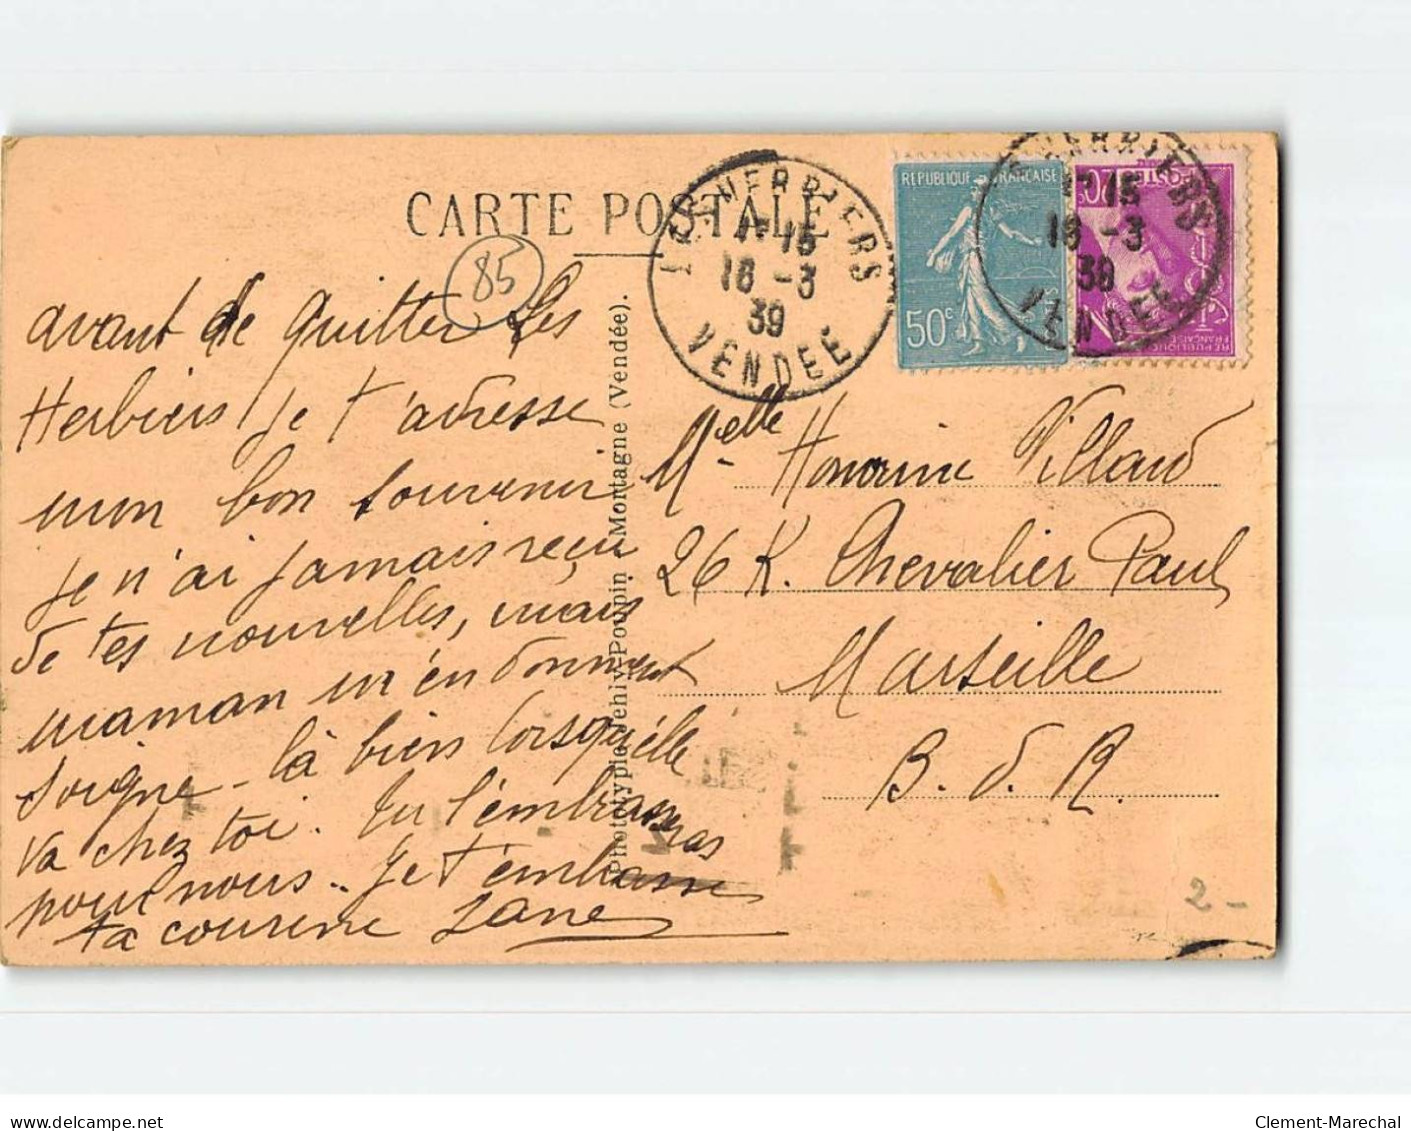 CARTE POSTALE
85
LES HERBIERS
18 -3
39
VENDÉE
REPUBLIQUE FRANÇAISE
50c
HERBIERS
15
18 -3
39
VENDÉE
20c
REPUBLIQUE
FRANÇAISE
avant de quitter Les
Herbiers je t'adresse
mon bon souvenir
je n'ai jamais reçu
de tes nouvelles, mais
maman m'en donnent
soigne-là bien lorsqu'elle
va chez toi. Tu l'embrasseras
pour nous.. Je t'embrasse
ta cousine Jane
Phototypie Jehly-Poupin - Mortagne (Vendée).
Melle Honorine Villard
26 R. Chevalier Paul
Marseille
B. d. R.
2-
delcampe.net
Clement-Marechal